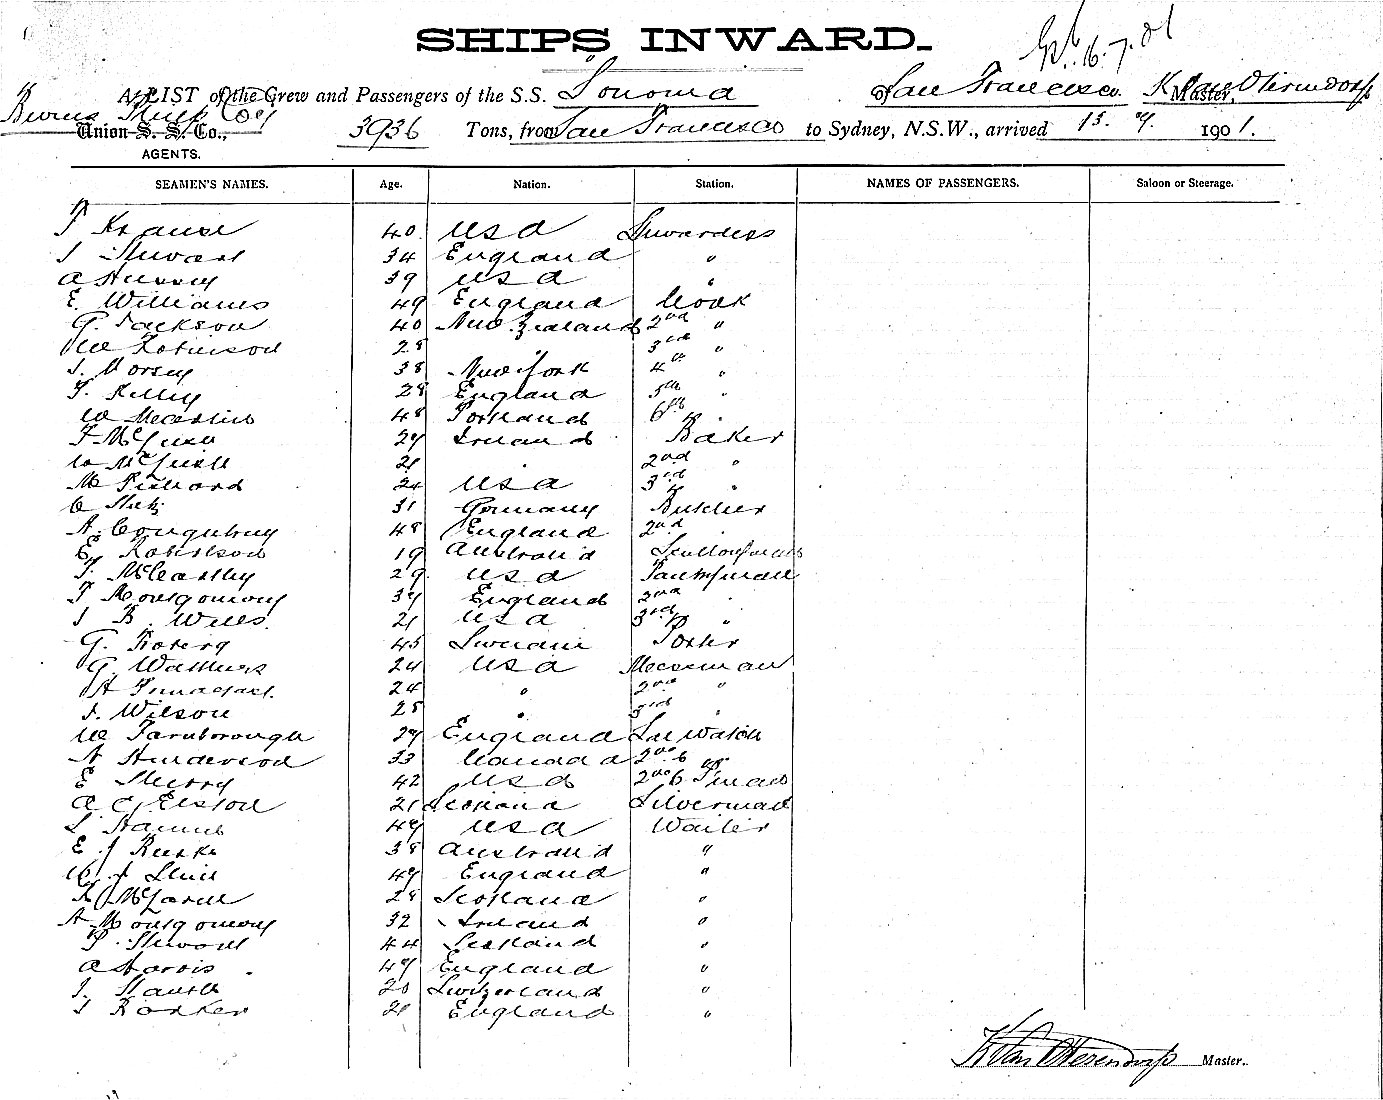 SHIPS INWARD.
16.7.01
A LIST of the Crew and Passengers of the S.S. Sonoma of San Francisco K Van Oterendorp Master,
Burns Philp Coy
Union S. S. Co.,
AGENTS.
3936 Tons, from San Francisco to Sydney, N.S.W., arrived 15. 7. 1901.
SEAMEN'S NAMES. Age. Nation. Station. NAMES OF PASSENGERS. Saloon or Steerage.
T Krause 40 USA Stewardess
J Stewart 34 England "
A Hussey 39 USA "
E. Williams 49 England Cook
G. Jackson 40 New Zealand 2nd "
W Robinson 28 " 3rd "
J. Dorsey 38 New York 4th "
T. Kelley 28 England 5th "
W 48 Portland 6th "
F McGuire 27 Ireland Baker
W 21 " 2nd "
M 24 USA 3rd "
C 31 Germany Butcher
A. 48 England 2nd "
E Robertson 19 Australia Sculleryman
T. McCarthy 29 USA Pantryman
T Montgomery 37 England 2nd "
J B. Wills 21 USA 3rd "
G. Roberg 45 Sweden Porter
G. Watkins 24 USA Messman
H 24 " 2nd "
J. Wilson 28 " 3rd "
W Farnborough 27 England Watch
A Henderson 33 Canada 2nd
E Sherry 42 USA 2nd
A C Elston 21 Scotland Silverman
L. Hamel 47 USA Waiter
E. J 38 Australia "
W J 47 England "
R McGarvie 28 Scotland "
A Montgomery 32 Ireland "
P. Stewart 44 Scotland "
A Harris 47 England "
J. 20 Switzerland "
J Barker 21 England "
K Van Oterendorp Master.